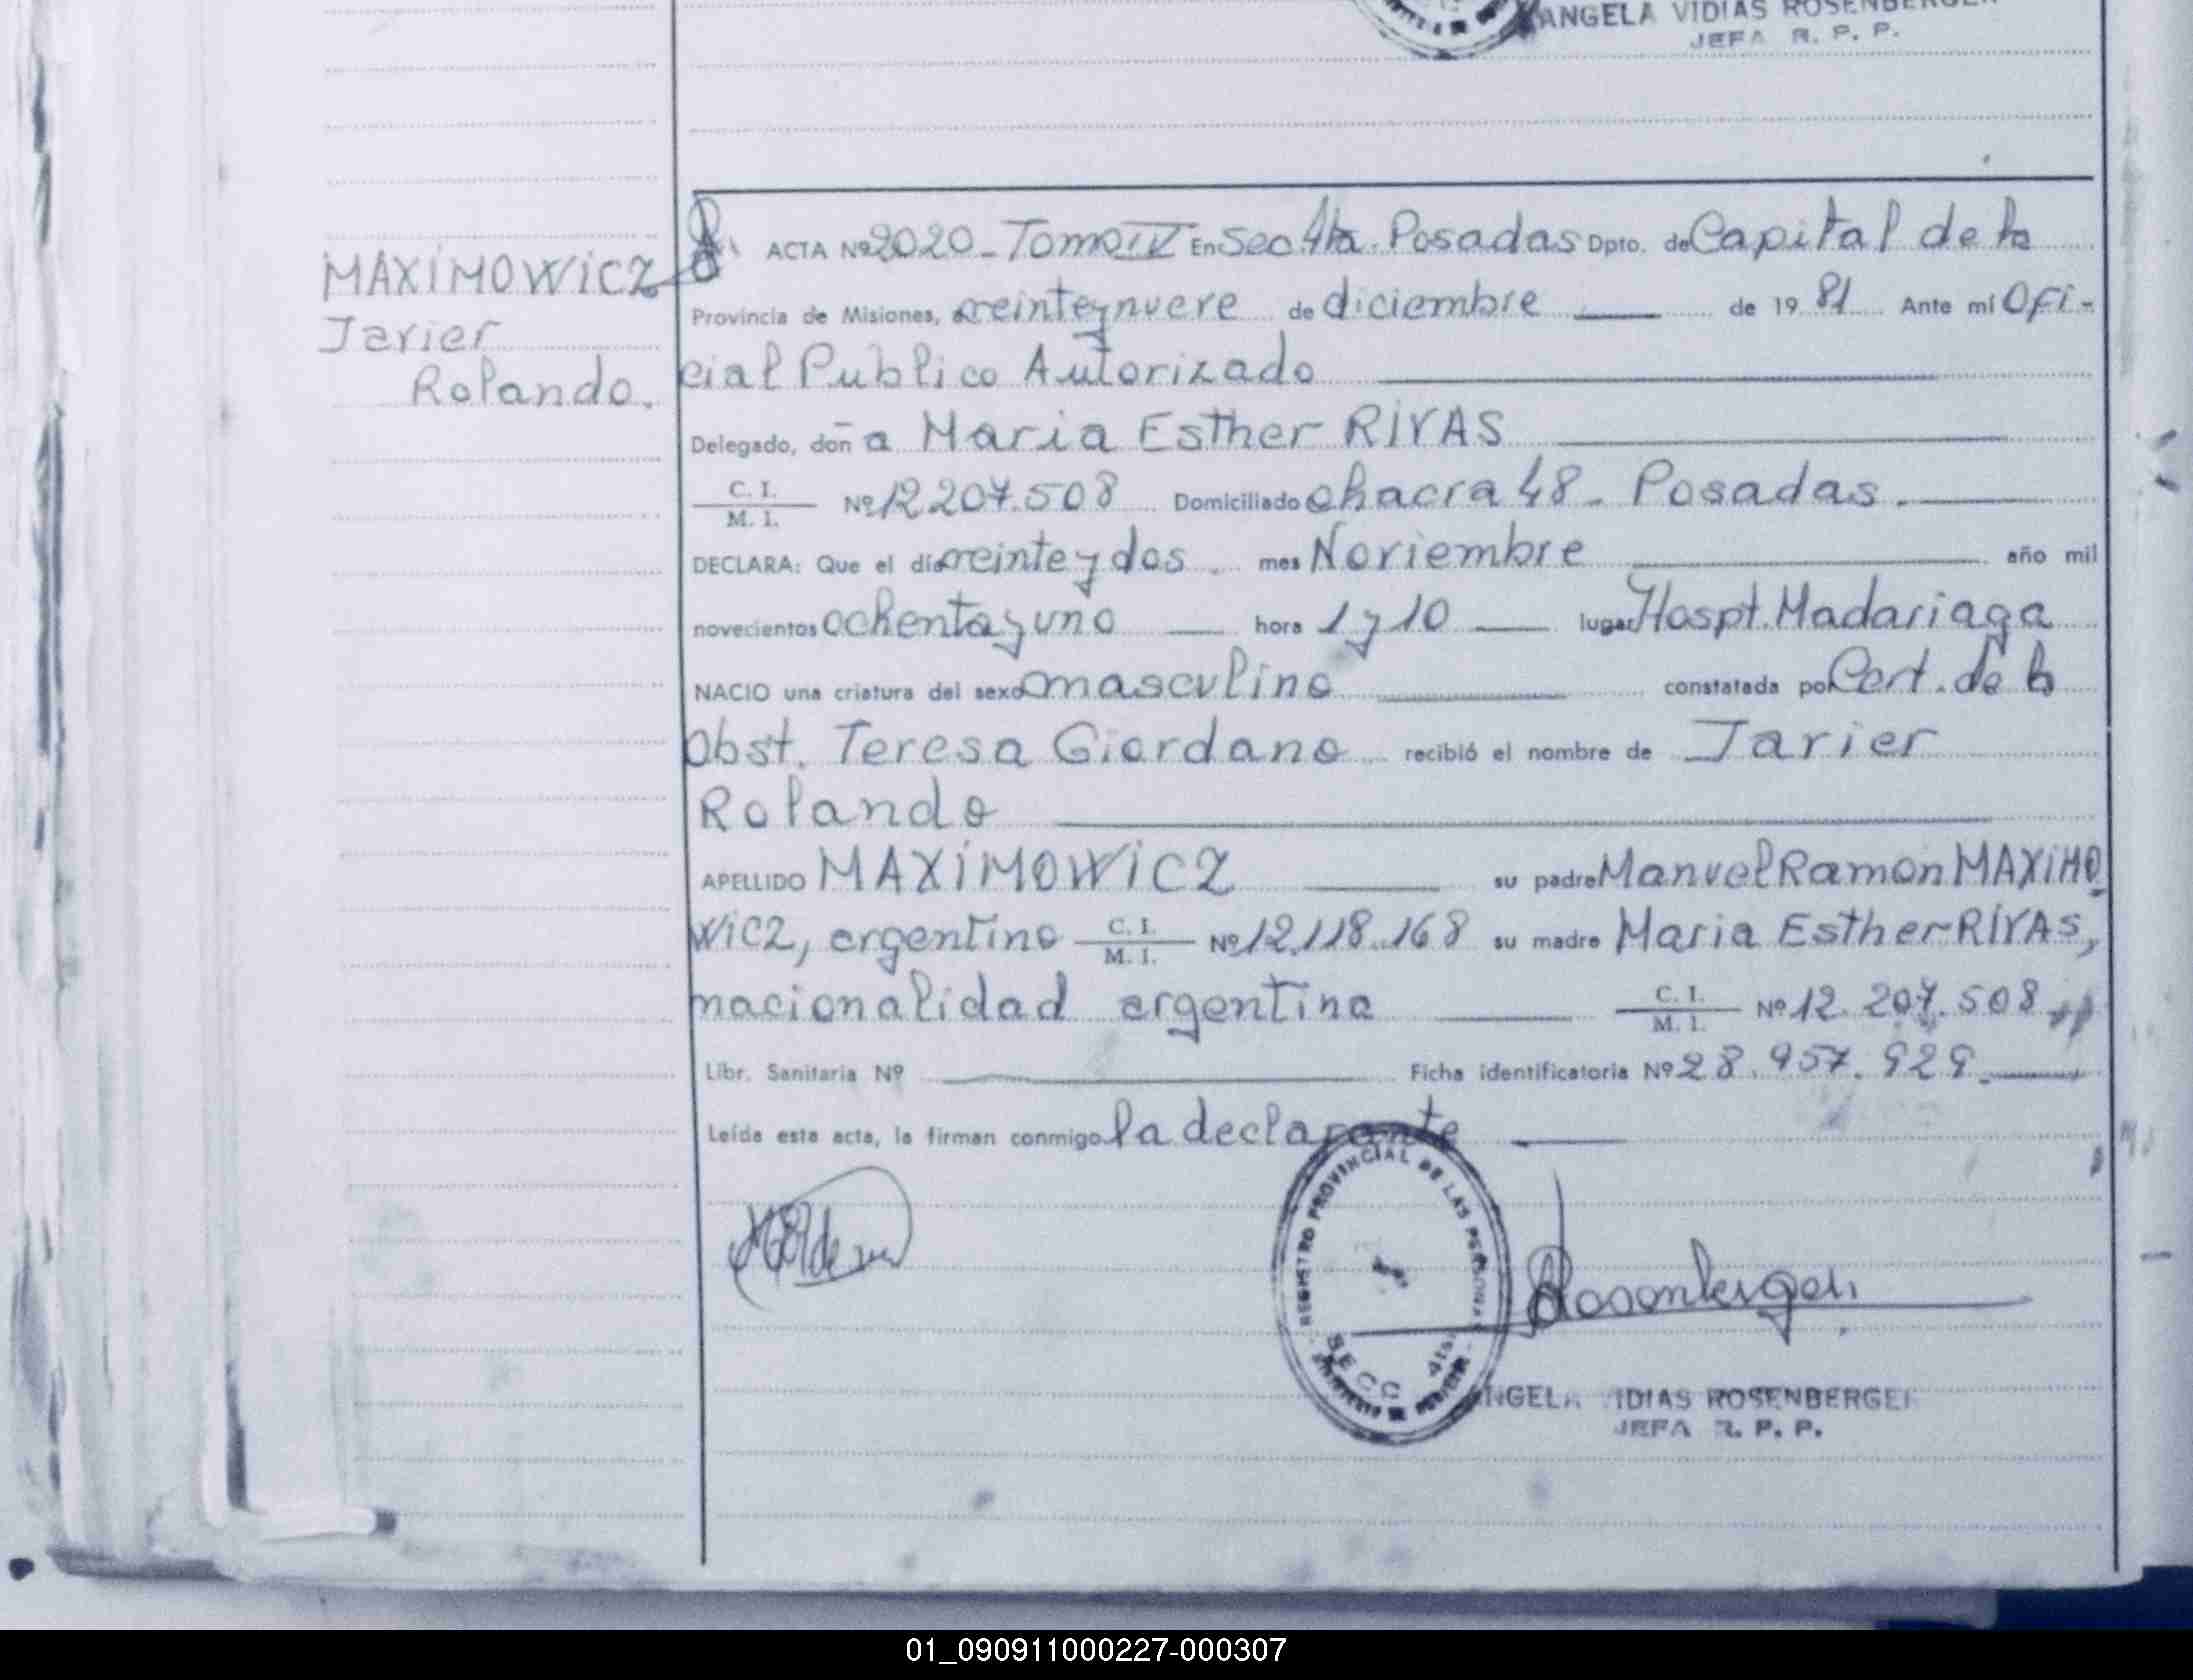 ANGELA VIDIAS ROSENBERGER
JEFA R. P. P.
MAXIMOWICZ
Javier
Rolando.
ACTA Nº 2020 - Tomo IV En Sec 4ta. Posadas Dpto. de Capital de la
Provincia de Misiones, a veinteynueve de diciembre de 1981 Ante mí Ofi-
cial Publico Autorizado
Delegado, doña Maria Esther RIVAS
C. I.
M. I. Nº 12.207.508 Domiciliado chacra 48 - Posadas.
DECLARA: Que el día veinteydos. mes Noviembre año mil
novecientos ochentayuno hora 1 y 10 lugar Hospt. Madariaga
NACIO una criatura del sexo masculino constatada por Cert. de la
Obst. Teresa Giordano recibió el nombre de Javier
Rolando
APELLIDO MAXIMOWICZ su padre Manuel Ramon MAXIMO
WICZ, argentino C. I. M. I. Nº 12.118.168 su madre Maria Esther RIVAS,
nacionalidad argentina C. I. M. I. Nº 12.207.508
Libr. Sanitaria Nº Ficha identificatoria Nº 28.957.929.
Leída esta acta, la firman conmigo la declarante
REGISTRO PROVINCIAL DE LAS PERSONAS
SECC 4ta.
Rosenberger
ANGELA VIDIAS ROSENBERGER
JEFA R. P. P.
01_090911000227-000307